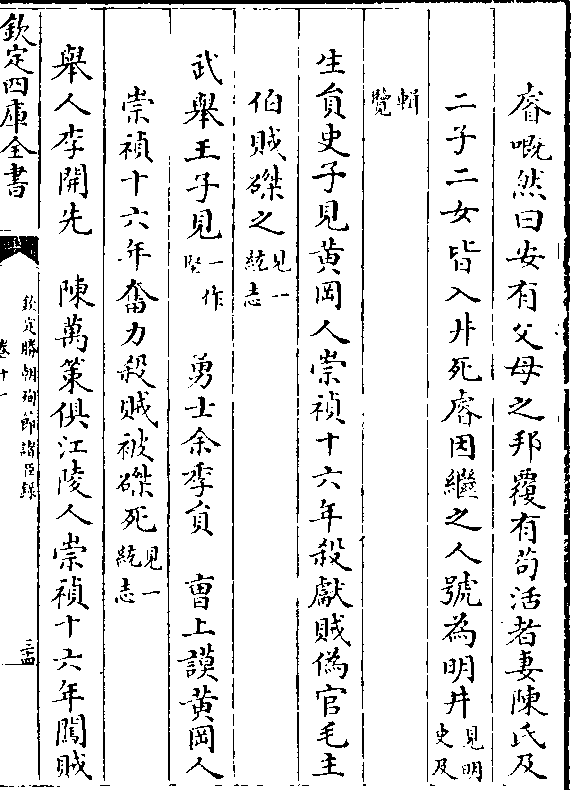 睿嘅然曰安有父母之邦覆有茍活者妻陳氏及
二子二女皆入井死睿因繼之人號為明井見明史及
輯覽
生員史子見黃岡人崇禎十六年殺獻賊偽官毛主
伯賊磔之見一統志
武舉王子見一作堅　勇士余季貟　曹上謨黃岡人
崇禎十六年奮力殺賊被磔死見一統志
舉人李開先　陳萬策俱江陵人崇禎十六年闖賊
欽定四庫全書
欽定勝朝殉節諸臣錄
卷十一